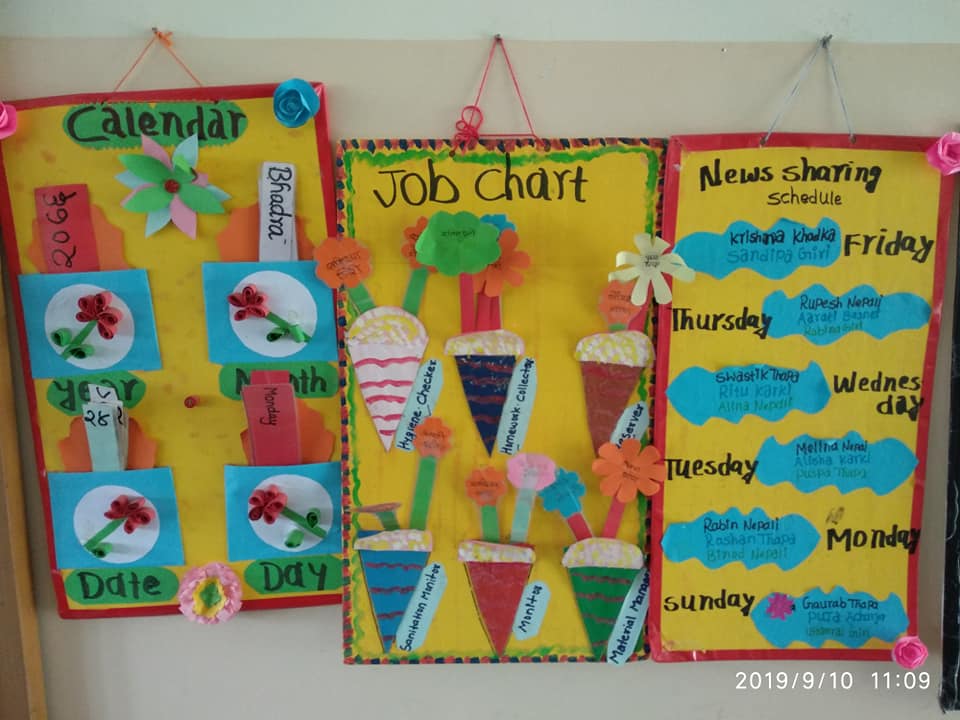 Calendar
२०७६
Bhadra
Year
Month
28
Monday
Date
Day
Job Chart
Hygiene checker
Homework Collector
Observer
Sanitation Monitor
Monitor
Material Manager
News sharing
schedule
Krishna Khadka
Sandipa Giri
Friday
Thursday
Rupesh Nepali
Aarati Basnet
Rabina Giri
Swastik Thapa
Ritu Karki
Alina Nepali
Wednes
day
Tuesday
Melina Nepali
Alisha Karki
Puspa Thapa
Rabin Nepali
Roshan Thapa
Binod Nepali
Monday
Sunday
Gaurab Thapa
Puja Acharja
Giri
2019/9/10 11:09